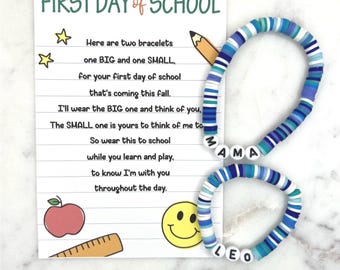 FIRST DAY of SCHOOL
Here are two bracelets
one BIG and one SMALL,
for your first day of school
that's coming this fall.
I'll wear the BIG one and think of you,
The SMALL one is yours to think of me to
So wear this to school
while you learn and play,
to know I'm with you
throughout the day.
MAMA
LEO